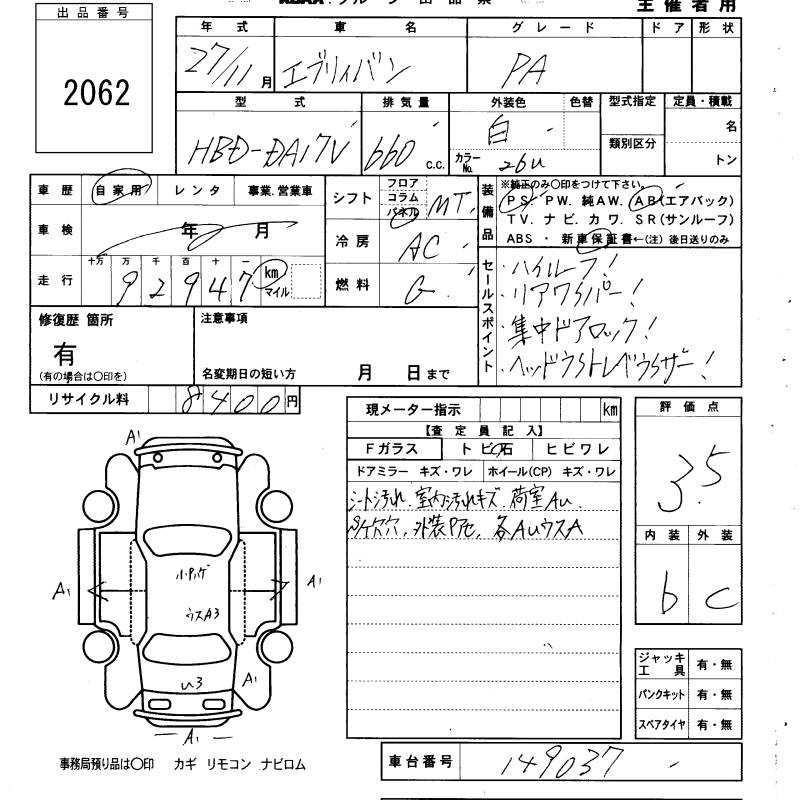 出品番号
主催者用
2062
年式 車名 グレード ドア 形状
27/11月 エブリィバン PA
型式 排気量 外装色 色替 型式指定 定員・積載
HBD-DA17V 660 c.c. 白 名
類別区分
カラーNo. 26U トン
車歴 自家用 レンタ 事業.営業車
シフト フロア コラム パネル MT
装備品 ※純正のみ○印をつけて下さい。
PS. PW. 純AW. AB(エアバック)
TV. ナビ. カワ. SR(サンルーフ)
ABS ・ 新車保証書←(注) 後日送りのみ
車検 年 月
冷房 AC
走行 十万 万 千 百 十 一
92947 km マイル
燃料 G
セールスポイント
・ハイルーフ!
・リアワイパー!
・集中ドアロック!
・ヘッドライトレベライザー!
修復歴 箇所
有
(有の場合は○印を)
注意事項
名変期日の短い方 月 日まで
リサイクル料 8400円
現メーター指示 km
評価点
3.5
【査定員記入】
Fガラス トビ石 ヒビワレ
ドアミラー キズ・ワレ ホイール(CP) キズ・ワレ
シート汚れ、室内汚れキズ、荷室AU
外装P7セ、各AUウスA
内装 外装
b C
A1
小Pハゲ
A1 A1
ウスA3
U3 A1
A1
ジャッキ 工具 有・無
パンクキット 有・無
スペアタイヤ 有・無
事務局預り品は○印 カギ リモコン ナビロム
車台番号 149037